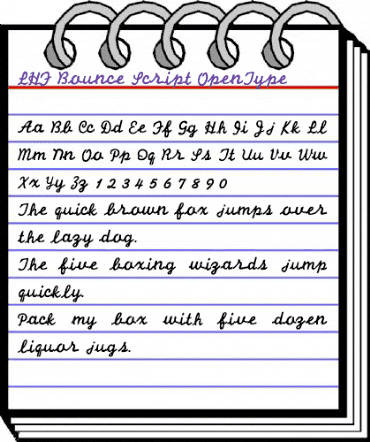 LHF Bounce Script OpenType
Aa Bb Cc Dd Ee Ff Gg Hh Ii Jj Kk Ll
Mm Nn Oo Pp Qq Rr Ss Tt Uu Vv Ww
Xx Yy Zz 1 2 3 4 5 6 7 8 9 0
The quick brown fox jumps over
the lazy dog.
The five boxing wizards jump
quickly.
Pack my box with five dozen
liquor jugs.